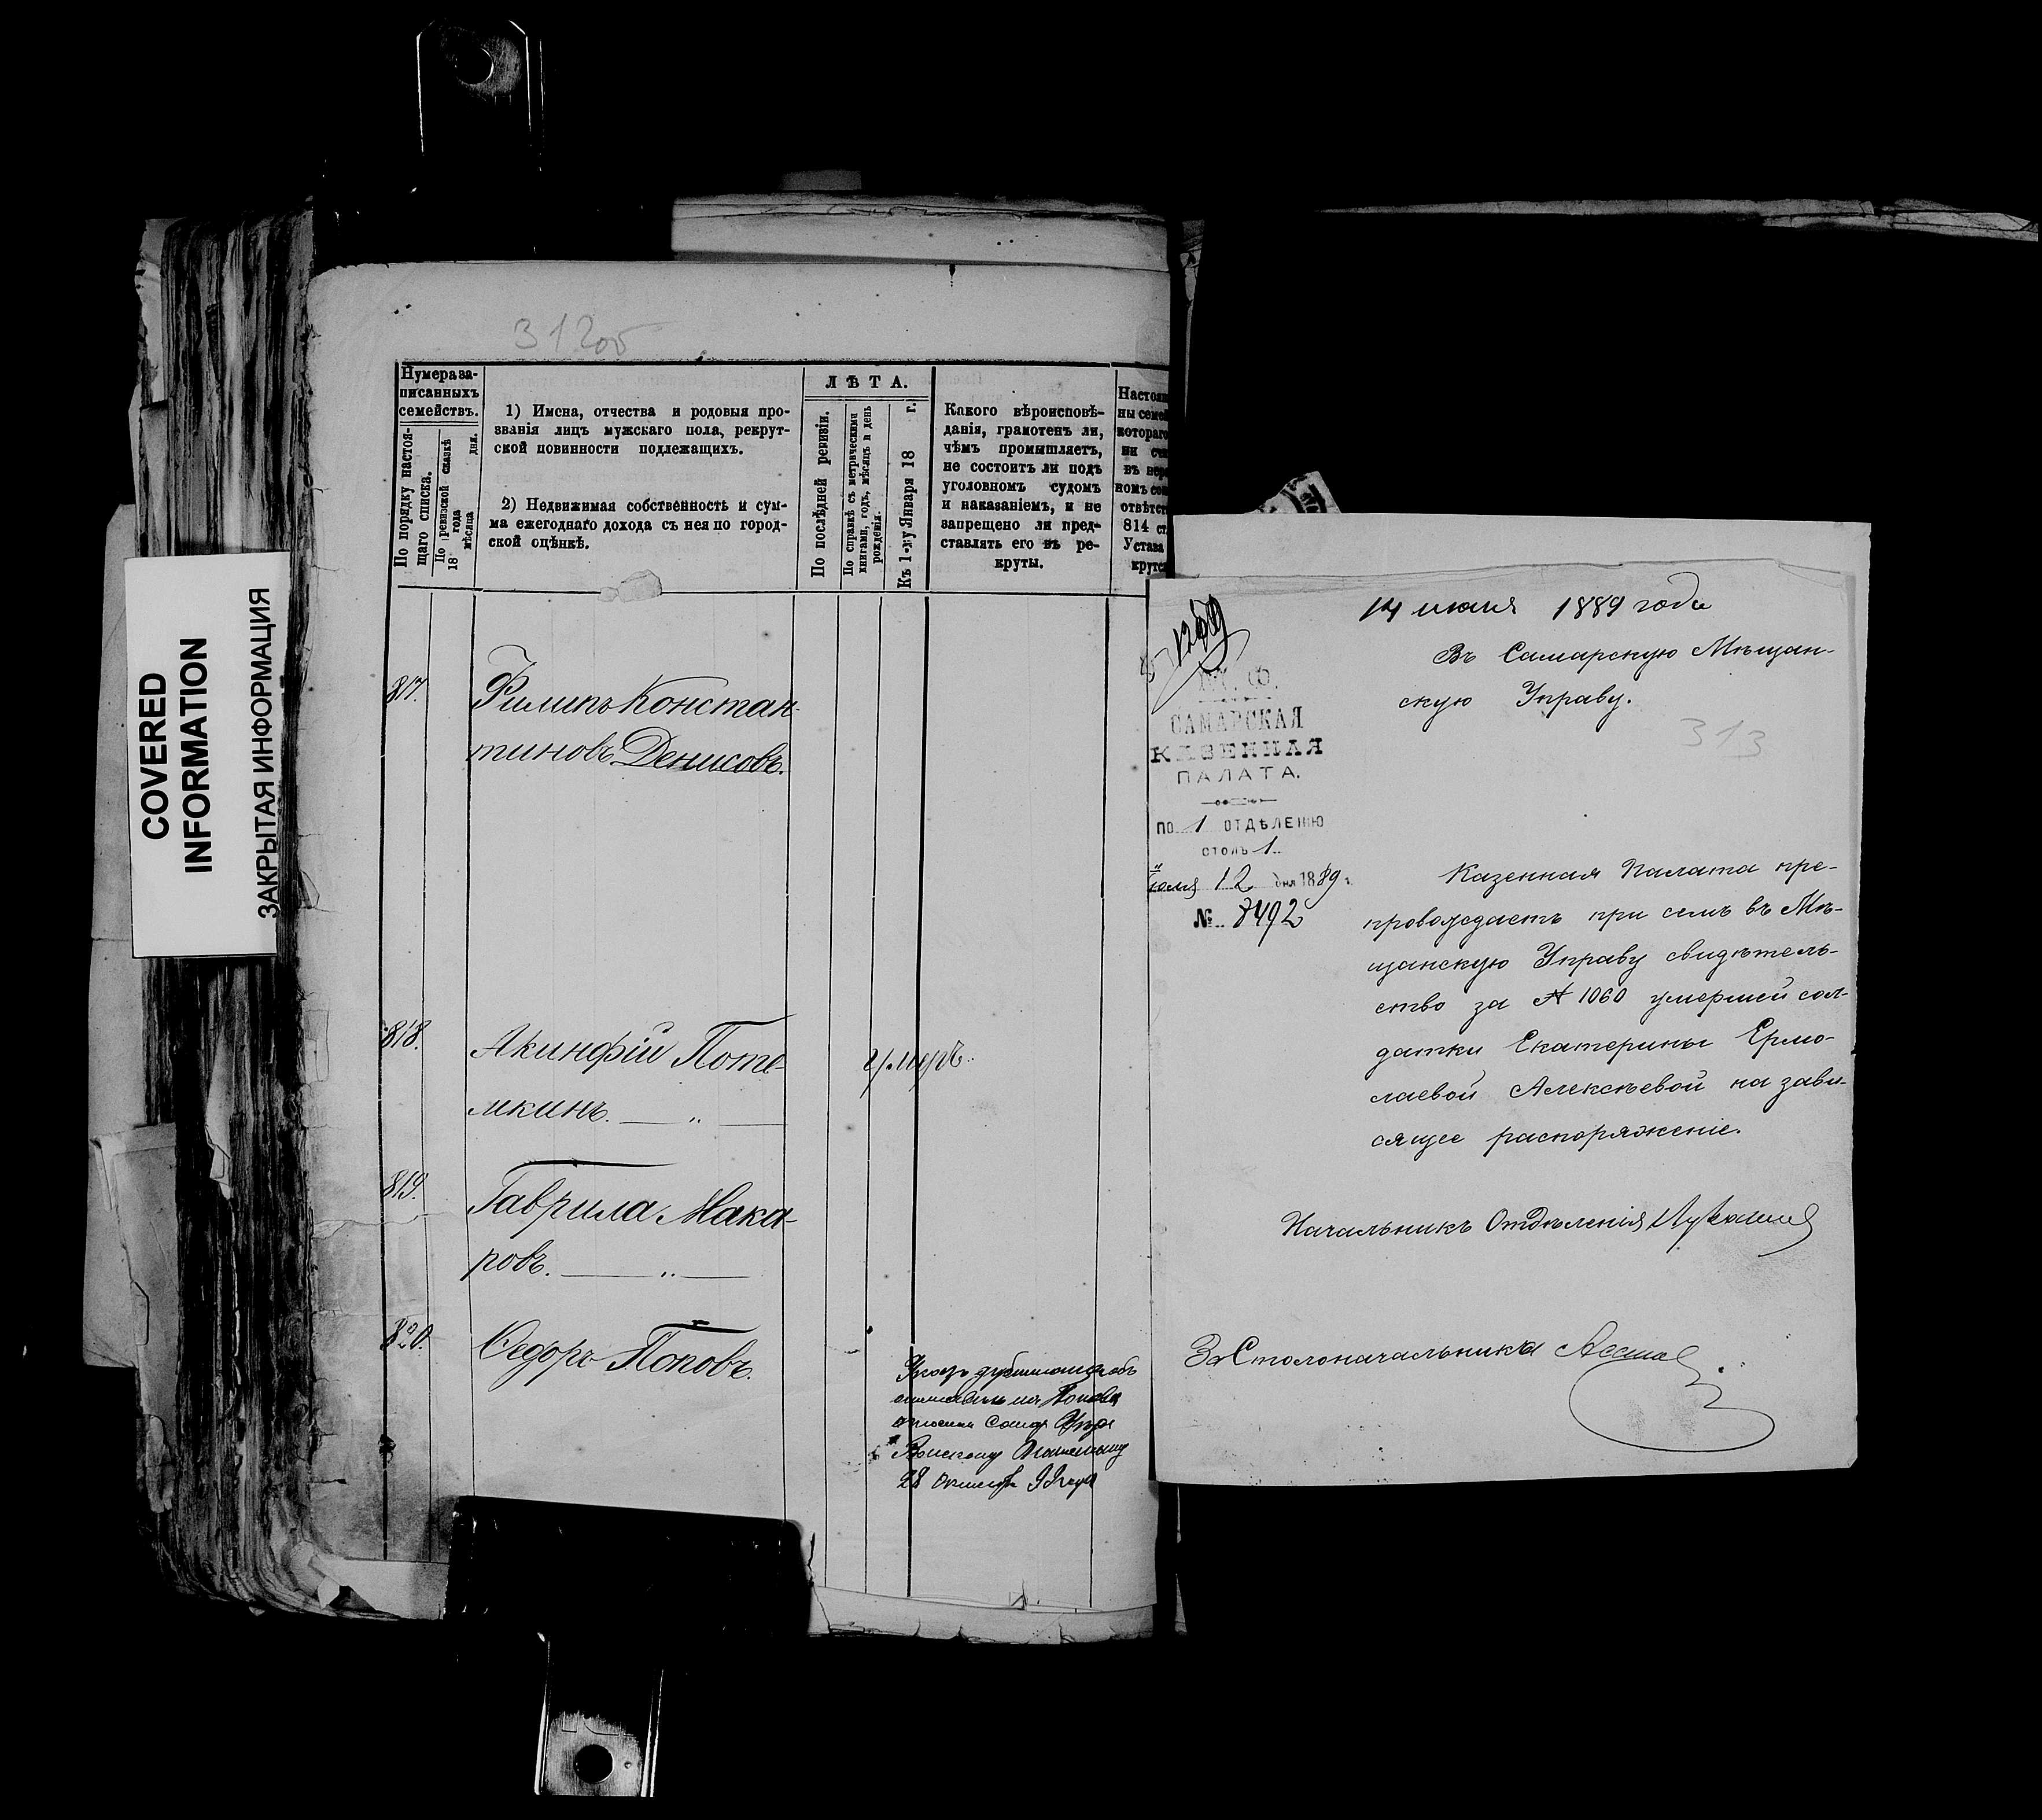 COVERED
INFORMATION
ЗАКРЫТАЯ ИНФОРМАЦИЯ
312об
Нумера за-
писанныхъ
семействъ.
По порядку настоя-
щаго списка.
По ревизской сказкѣ
18 года
мѣсяца дня.
1) Имена, отчества и родовыя про-
званія лицъ мужскаго пола, рекрут-
ской повинности подлежащихъ.
2) Недвижимая собственность и сум-
ма ежегоднаго дохода съ нея по город-
ской оцѣнкѣ.
ЛѢТА.
По послѣдней ревизіи.
По справкѣ съ метрическими
книгами, годъ, мѣсяцъ и день
рожденія.
Къ 1-му Января 18 г.
Какого вѣроисповѣ-
данія, грамотенъ ли,
чѣмъ промышляетъ,
не состоитъ ли подъ
уголовномъ судомъ
и наказаніемъ, и не
запрещено ли пред-
ставлять его въ ре-
круты.
Настоя
ны семе
котораго
ни
въ
номъ
отвѣтс
814 ст.
Устава
крутс
817.
Филипъ Констан-
тиновъ Денисовъ.
818.
Акинфій Поте-
мкинъ. — „ —
умеръ.
819.
Гаврила Мака-
ровъ. — „ —
820.
Ѳедоръ Поповъ.
28
14 июля 1889 года
Въ Самарскую Мѣщан-
скую Управу.
313
М. Ф.
САМАРСКАЯ
КАЗЕННАЯ
ПАЛАТА.
ПО 1 ОТДѢЛЕНІЮ
СТОЛЪ 1
Іюля 12 дня 1889 г.
№ 8492
Казенная Палата пре-
провождаетъ при семъ въ Мѣ-
щанскую Управу свидѣтель-
ство за № 1060 умершей сол-
датки Екатерины Ермо-
лаевой Алексѣевой на зави-
сящее распоряженіе.
Начальникъ Отдѣленія
За Столоначальника